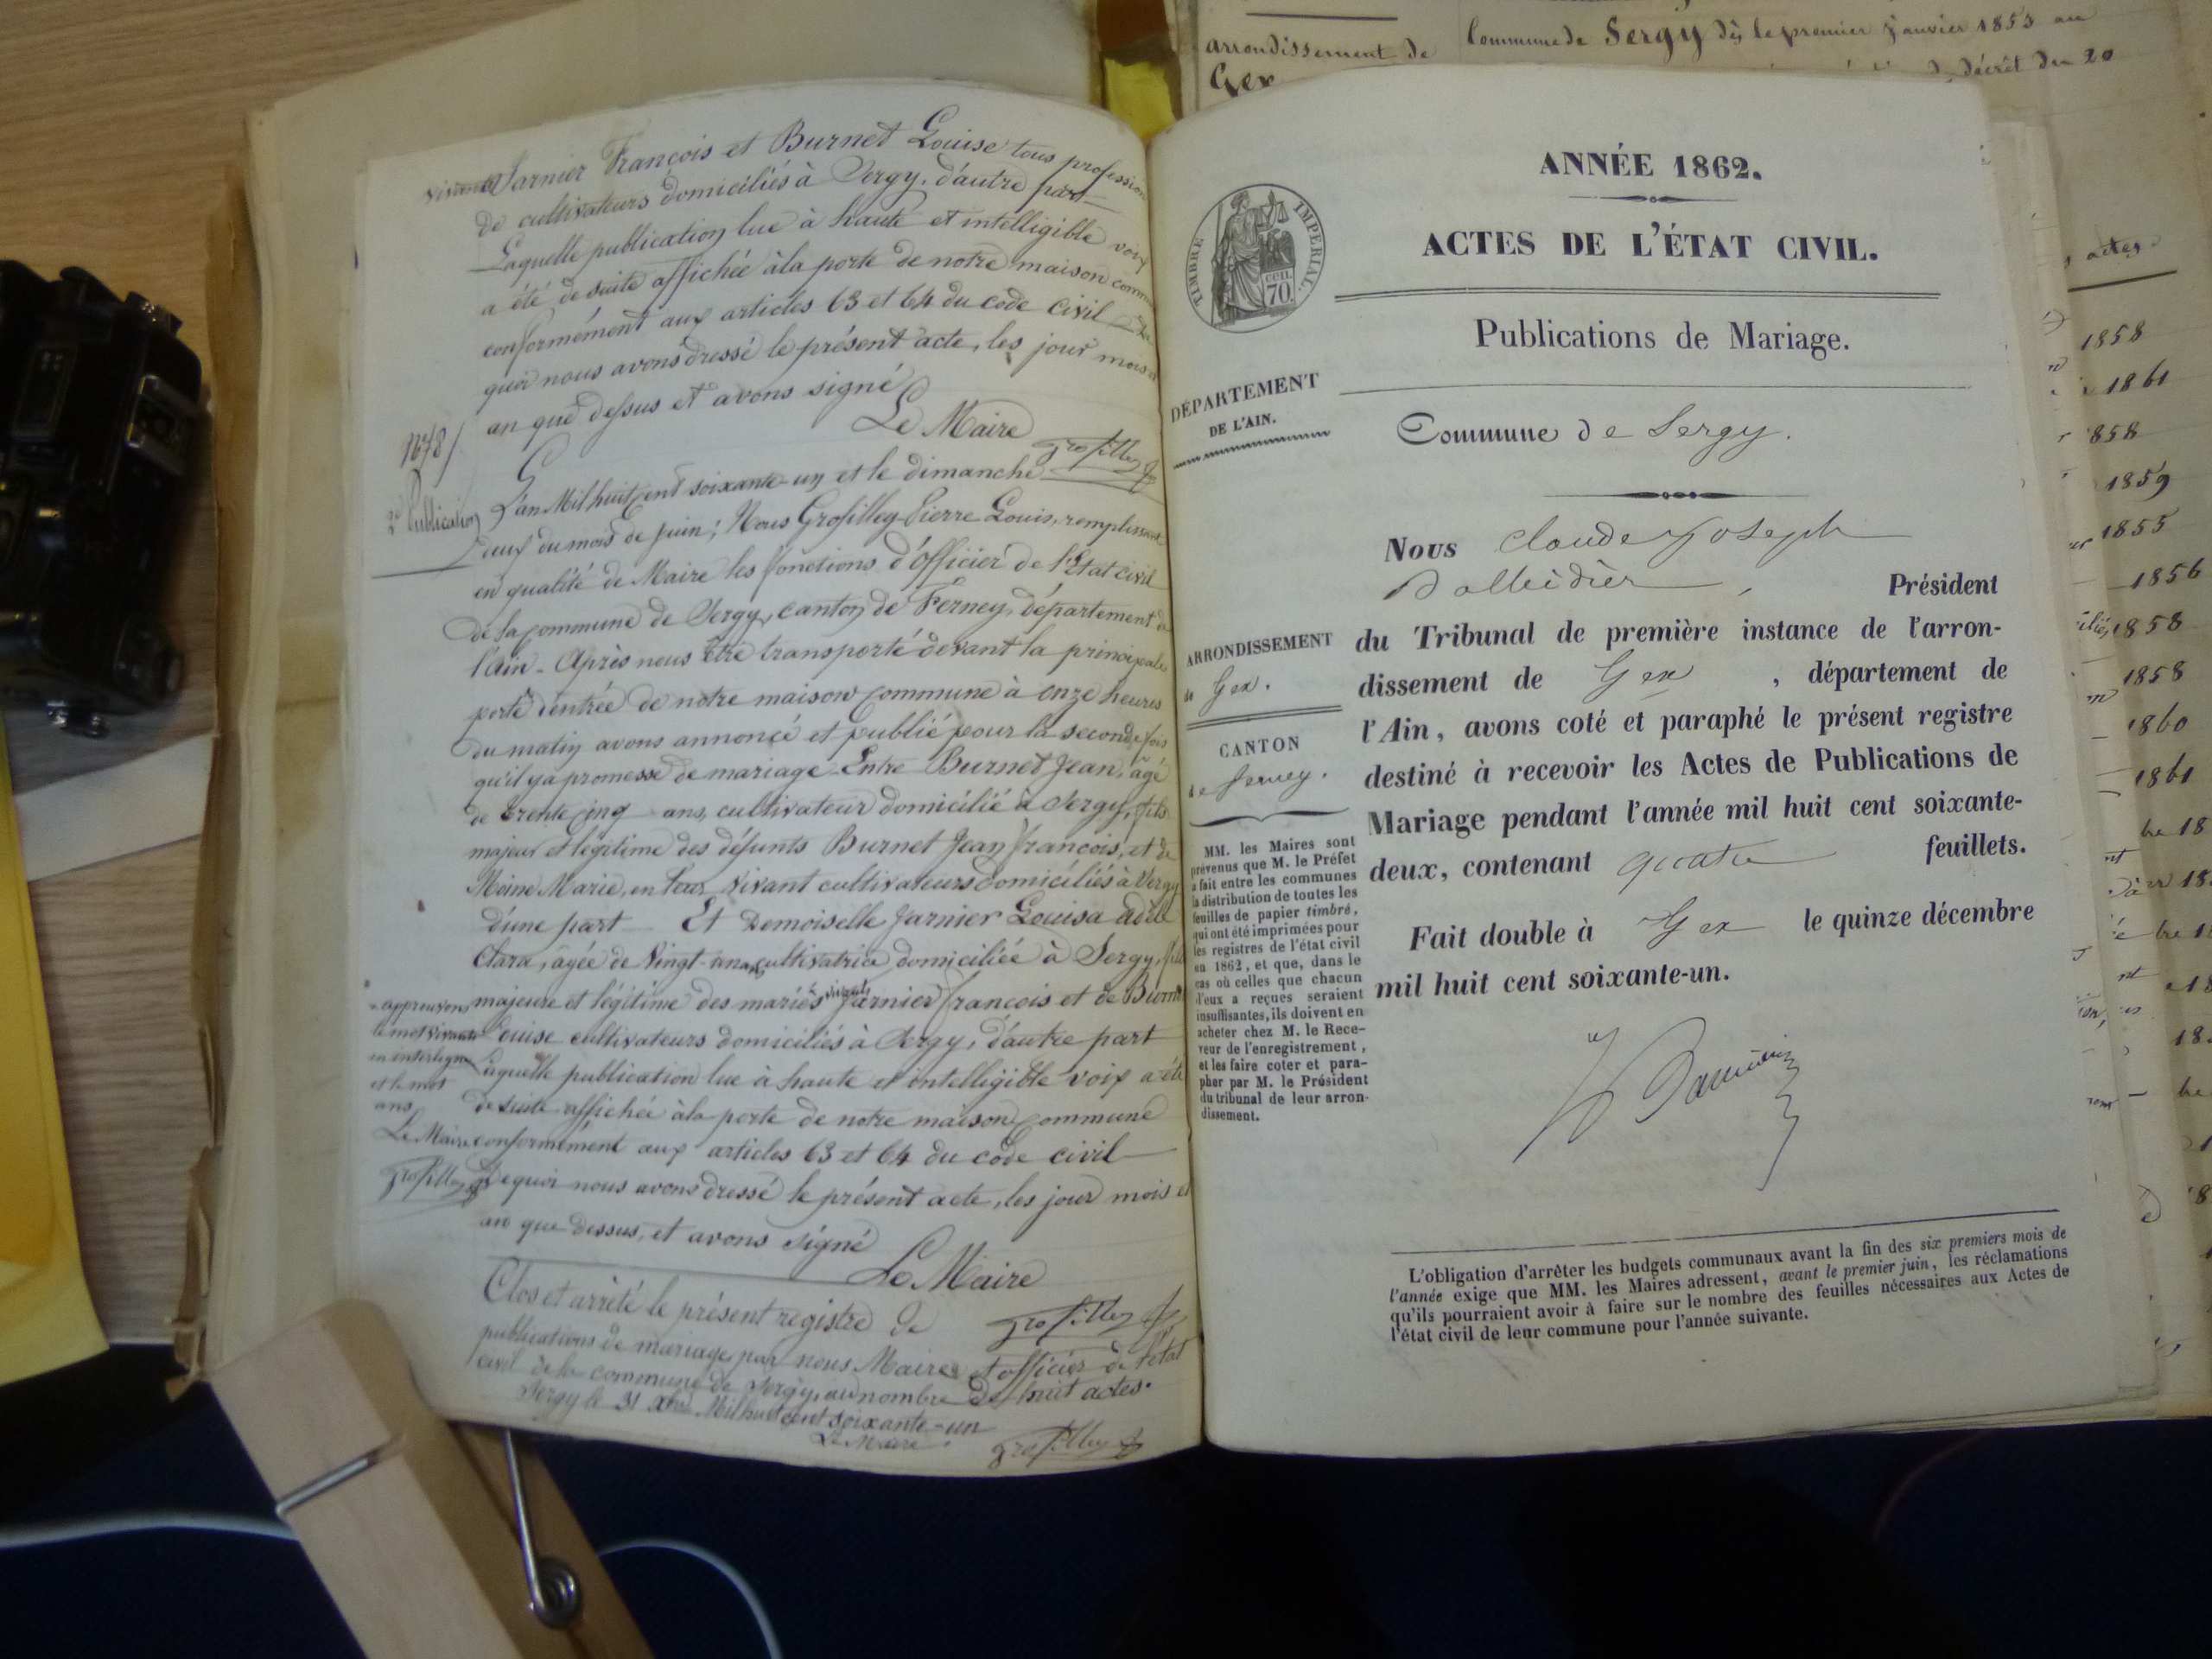 vivants Jarnier François et Burnet Louise tous profession
de cultivateurs domiciliés à Sergy, d'autre part
Laquelle publication lue à haute et intelligible voix
a été de suite affichée à la porte de notre maison comm
conformément aux articles 63 et 64 du code civil De
quoi nous avons dressé le présent acte, les jour mois et
an que dessus et avons signé
Le Maire
Grosfilley
N° 8
2e Publication
L'an Mil huit cent soixante-un et le dimanche
neuf du mois de juin; Nous Grosfilley Pierre Louis, remplissant
en qualité de Maire les fonctions d'Officier de l'Etat civil
de la commune de Sergy, canton de Ferney, département de
l'Ain. Après nous être transporté devant la principale
porte d'entrée de notre maison commune à onze heures
du matin avons annoncé et publié pour la seconde fois
qu'il y a promesse de mariage Entre Burnet Jean, âgé
de trente cinq ans, cultivateur domicilié à Sergy, fils
majeur et légitime des défunts Burnet Jean François, et de
Moine Marie, en leur vivant cultivateurs domiciliés à Sergy
d'une part Et Demoiselle Jarnier Louisa adèle
Clara, âgée de Vingt-un ans cultivatrice domiciliée à Sergy, fille
majeure et légitime des mariés vivants Jarnier françois et de Burnet
Louise cultivateurs domiciliés à Sergy, d'autre part
Laquelle publication lue à haute et intelligible voix a été
de suite affichée à la porte de notre maison commune
conformément aux articles 63 et 64 du code civil
De quoi nous avons dressé le présent acte, les jour mois et
an que dessus, et avons signé
Le Maire
Grosfilley
approuvons
le mot vivants
en interligne
et le mot
ans
Le Maire
Grosfilley
Clos et arrêté le présent registre de
publications de mariage par nous Maire et officier de l'état
civil de la commune de Sergy, au nombre de huit actes.
Sergy le 31 Xbre Mil huit cent soixante-un
Le Maire
Grosfilley
ANNÉE 1862.
ACTES DE L'ÉTAT CIVIL.
TIMBRE IMPÉRIAL.
cen.
70.
Publications de Mariage.
DÉPARTEMENT
DE L'AIN.
Commune de Sergy.
Nous Claude Joseph
, Président
du Tribunal de première instance de l'arron-
dissement de Gex , département de
l'Ain, avons coté et paraphé le présent registre
destiné à recevoir les Actes de Publications de
Mariage pendant l'année mil huit cent soixante-
deux, contenant quatre feuillets.
Fait double à Gex le quinze décembre
mil huit cent soixante-un.
ARRONDISSEMENT
de Gex.
CANTON
de Ferney.
MM. les Maires sont
prévenus que M. le Préfet
a fait entre les communes
la distribution de toutes les
feuilles de papier timbré,
qui ont été imprimées pour
les registres de l'état civil
en 1862, et que, dans le
cas où celles que chacun
d'eux a reçues seraient
insuffisantes, ils doivent en
acheter chez M. le Rece-
veur de l'enregistrement,
et les faire coter et para-
pher par M. le Président
du tribunal de leur arron-
dissement.
L'obligation d'arrêter les budgets communaux avant la fin des six premiers mois de
l'année exige que MM. les Maires adressent, avant le premier juin, les réclamations
qu'ils pourraient avoir à faire sur le nombre des feuilles nécessaires aux Actes de
l'état civil de leur commune pour l'année suivante.
arrondissement de
Gex
Commune de Sergy dès le premier Janvier 1853 au
décret du 20
actes
1858
1861
858
1859
1855
1856
1858
1858
1860
1861